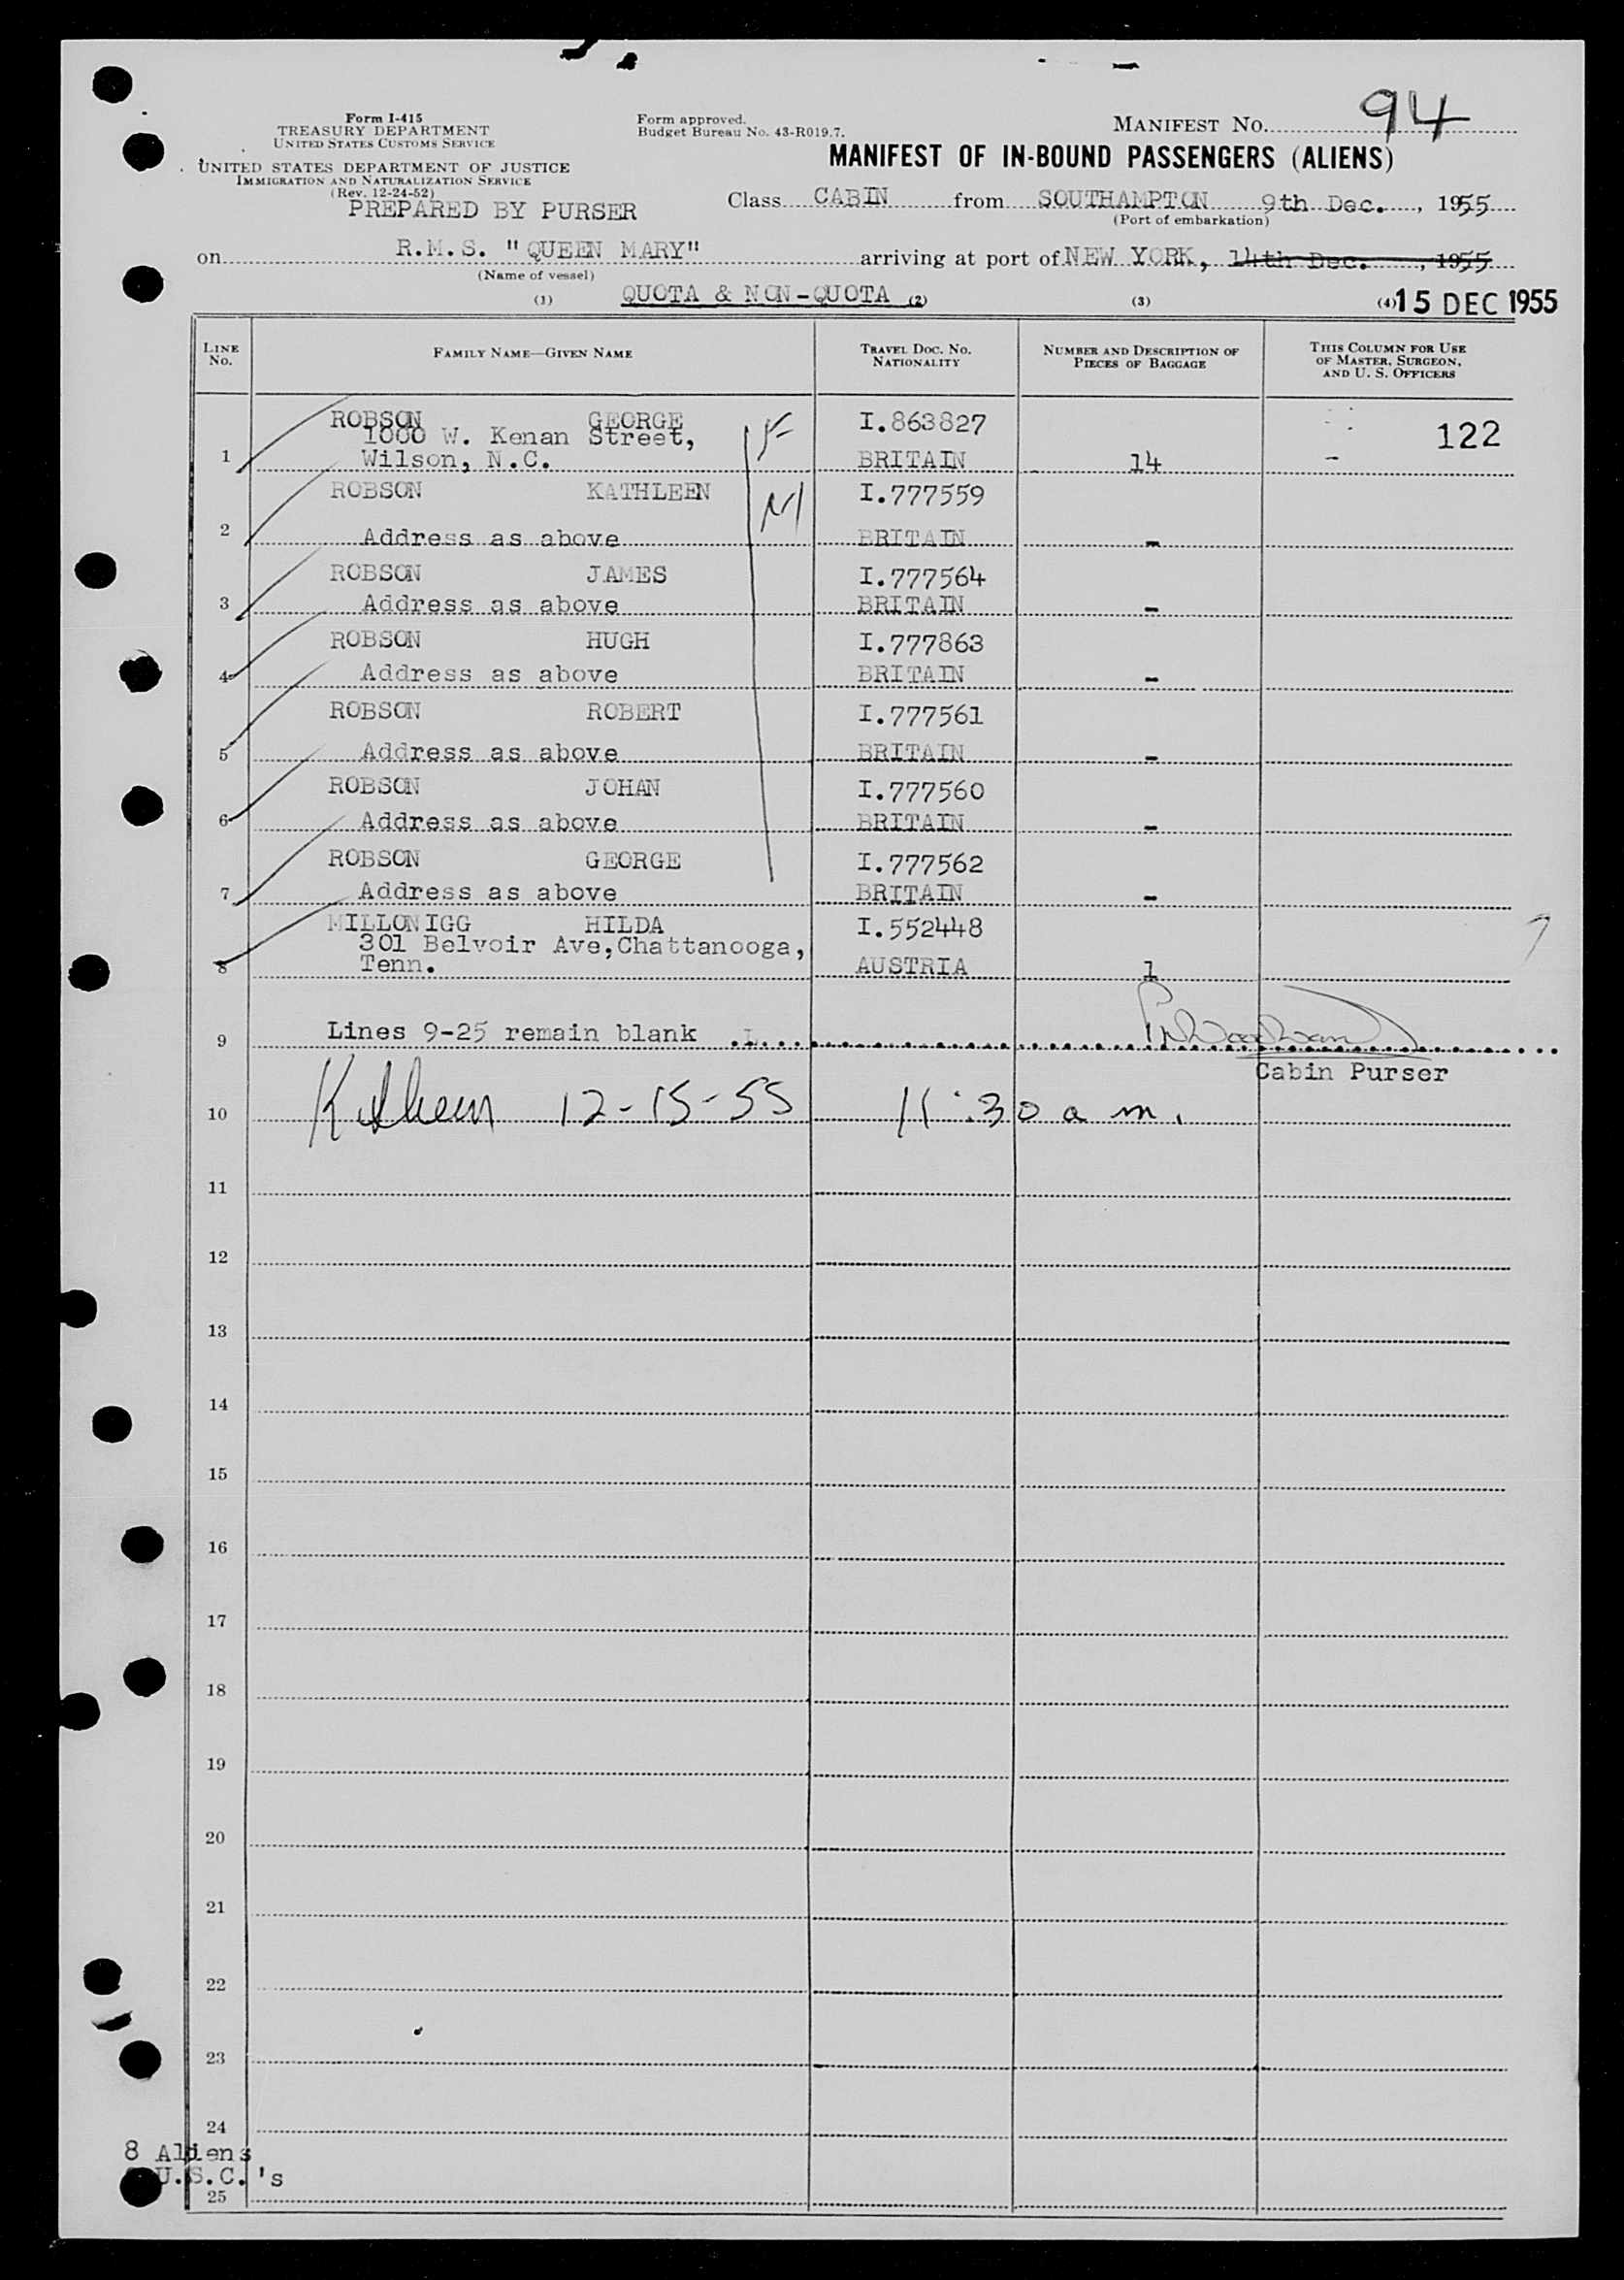 94
Form I-415
TREASURY DEPARTMENT
UNITED STATES CUSTOMS SERVICE
UNITED STATES DEPARTMENT OF JUSTICE
IMMIGRATION AND NATURALIZATION SERVICE
(Rev. 12-24-52)
PREPARED BY PURSER
Form approved.
Budget Bureau No. 43-R019.7.
MANIFEST No.
MANIFEST OF IN-BOUND PASSENGERS (ALIENS)
Class CABIN from SOUTHAMPTON 9th Dec. , 1955
(Port of embarkation)
on R.M.S. "QUEEN MARY" arriving at port of NEW YORK, 14th Dec. , 1955
(Name of vessel)
(1) QUOTA & NON-QUOTA (2) (3) (4) 15 DEC 1955
LINE No. FAMILY NAME—GIVEN NAME TRAVEL DOC. NO. NATIONALITY NUMBER AND DESCRIPTION OF PIECES OF BAGGAGE THIS COLUMN FOR USE OF MASTER, SURGEON, AND U. S. OFFICERS
ROBSON GEORGE I.863827 122
1000 W. Kenan Street,
1 Wilson, N.C. BRITAIN 14 -
ROBSON KATHLEEN I.777559
2 Address as above BRITAIN -
ROBSON JAMES I.777564
3 Address as above BRITAIN -
ROBSON HUGH I.777863
4 Address as above BRITAIN -
ROBSON ROBERT I.777561
5 Address as above BRITAIN -
ROBSON JOHAN I.777560
6 Address as above BRITAIN -
ROBSON GEORGE I.777562
7 Address as above BRITAIN -
MILLONIGG HILDA I.552448
301 Belvoir Ave,Chattanooga,
8 Tenn. AUSTRIA 1
9 Lines 9-25 remain blank
Cabin Purser
10 12-15-55 11:30 a m.
11
12
13
14
15
16
17
18
19
20
21
22
23
24
8 Aliens
U.S.C.'s
25